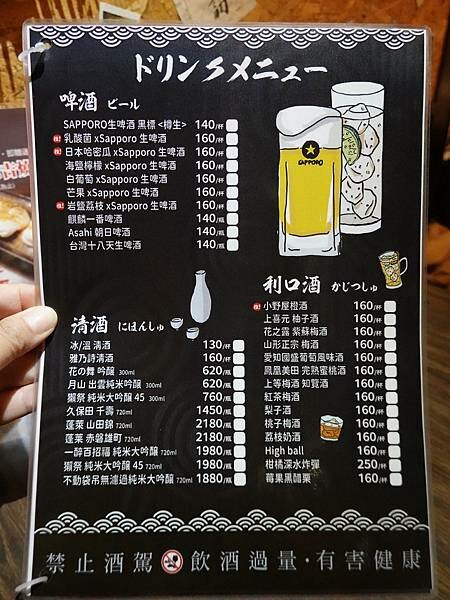 ドリンクメニュー
啤酒 ビール
SAPPORO生啤酒 黑標 <樽生> 140/杯
推! 乳酸菌 xSapporo 生啤酒 160/杯
推! 日本哈密瓜 xSapporo 生啤酒 160/杯
海鹽檸檬 xSapporo 生啤酒 160/杯
白葡萄 xSapporo 生啤酒 160/杯
芒果 xSapporo 生啤酒 160/杯
推! 岩鹽荔枝 xSapporo 生啤酒 160/杯
麒麟一番啤酒 140/瓶
Asahi 朝日啤酒 140/瓶
台灣十八天生啤酒 140/瓶
SAPPORO
清酒 にほんしゅ
冰/溫 清酒 130/杯
雅乃詩清酒 160/杯
花の舞 吟釀 300ml 620/瓶
月山 出雲純米吟釀 300ml 620/瓶
獺祭 純米大吟釀 45 300ml 760/瓶
久保田 千壽 720ml 1450/瓶
蓬萊 山田錦 720ml 2180/瓶
蓬萊 赤磐雄町 720ml 2180/瓶
一醉百招福 純米大吟釀 720ml 1980/瓶
獺祭 純米大吟釀 45 720ml 1980/瓶
不動袋吊無濾過純米大吟釀 720ml 1880/瓶
利口酒 かじつしゅ
推! 小野屋橙酒 160/杯
上喜元 柚子酒 160/杯
花之露 紫蘇梅酒 160/杯
山形正宗 梅酒 160/杯
愛知國盛葡萄風味酒 160/杯
鳳凰美田 完熟蜜桃酒 160/杯
上等梅酒 知覽酒 160/杯
紅茶梅酒 160/杯
梨子酒 160/杯
桃子梅酒 160/杯
荔枝奶酒 160/杯
High ball 160/杯
柑橘深水炸彈 250/杯
莓果黑醋栗 160/杯
禁止酒駕 飲酒過量·有害健康